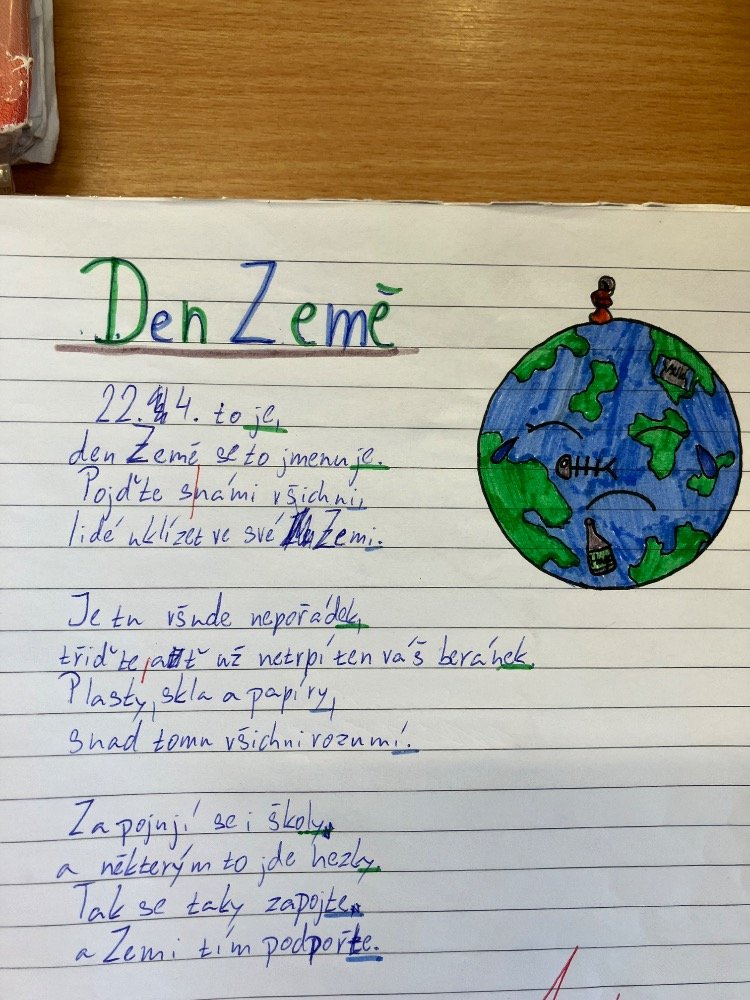 Den Země
22. 4. to je,
den Země se to jmenuje.
Pojďte s námi všichni,
lidé uklízet ve své Zemi.
Je tu všude nepořádek,
třiďte, ať už netrpí ten váš beránek.
Plasty, skla a papíry,
snad tomu všichni rozumí.
Zapojují se i školy,
a některým to jde hezky.
Tak se taky zapojte,
a Zemi tím podpořte.